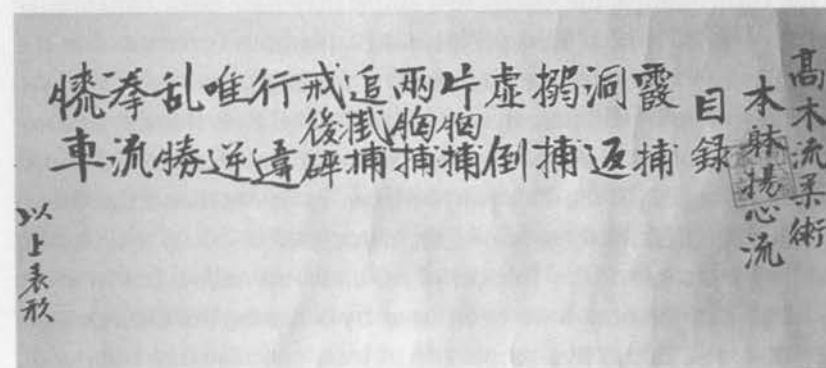 高木流柔術
本躰揚心流
目録
霞捕
洞返
搦捕
虚倒
片胸捕
両胸捕
追掛捕
戒後砕
行違
唯逆
乱勝
拳流
車
以上表形